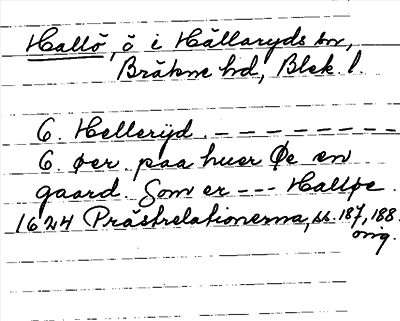 Hallö, ö i Hällaryds sn,
Bräkne hd, Blek. l.
6. Hellerijd. – – – – – – – –
6. øer paa huer Øe en
gaard. Som er --- Halløe.
1624 Prästrelationerna, ss. 187, 188.
orig.